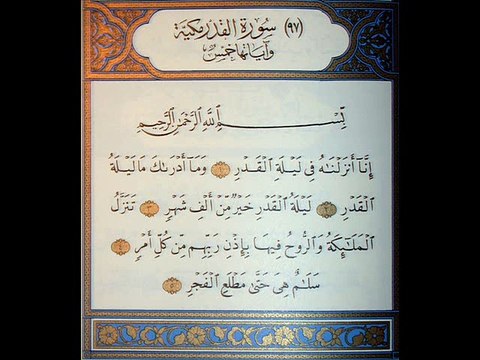 (٩٧) سُورَةُ القَدْرِ مَكِّيَّة
وَآيَاتُهَا خَمْسٌ
بِسْمِ اللَّهِ الرَّحْمَٰنِ الرَّحِيمِ
إِنَّآ أَنزَلْنَٰهُ فِى لَيْلَةِ الْقَدْرِ ١ وَمَآ أَدْرَىٰكَ مَا لَيْلَةُ
الْقَدْرِ ٢ لَيْلَةُ الْقَدْرِ خَيْرٌ مِّنْ أَلْفِ شَهْرٍ ٣ تَنَزَّلُ
الْمَلَٰٓئِكَةُ وَالرُّوحُ فِيهَا بِإِذْنِ رَبِّهِم مِّن كُلِّ أَمْرٍ ٤
سَلَٰمٌ هِىَ حَتَّىٰ مَطْلَعِ الْفَجْرِ ٥